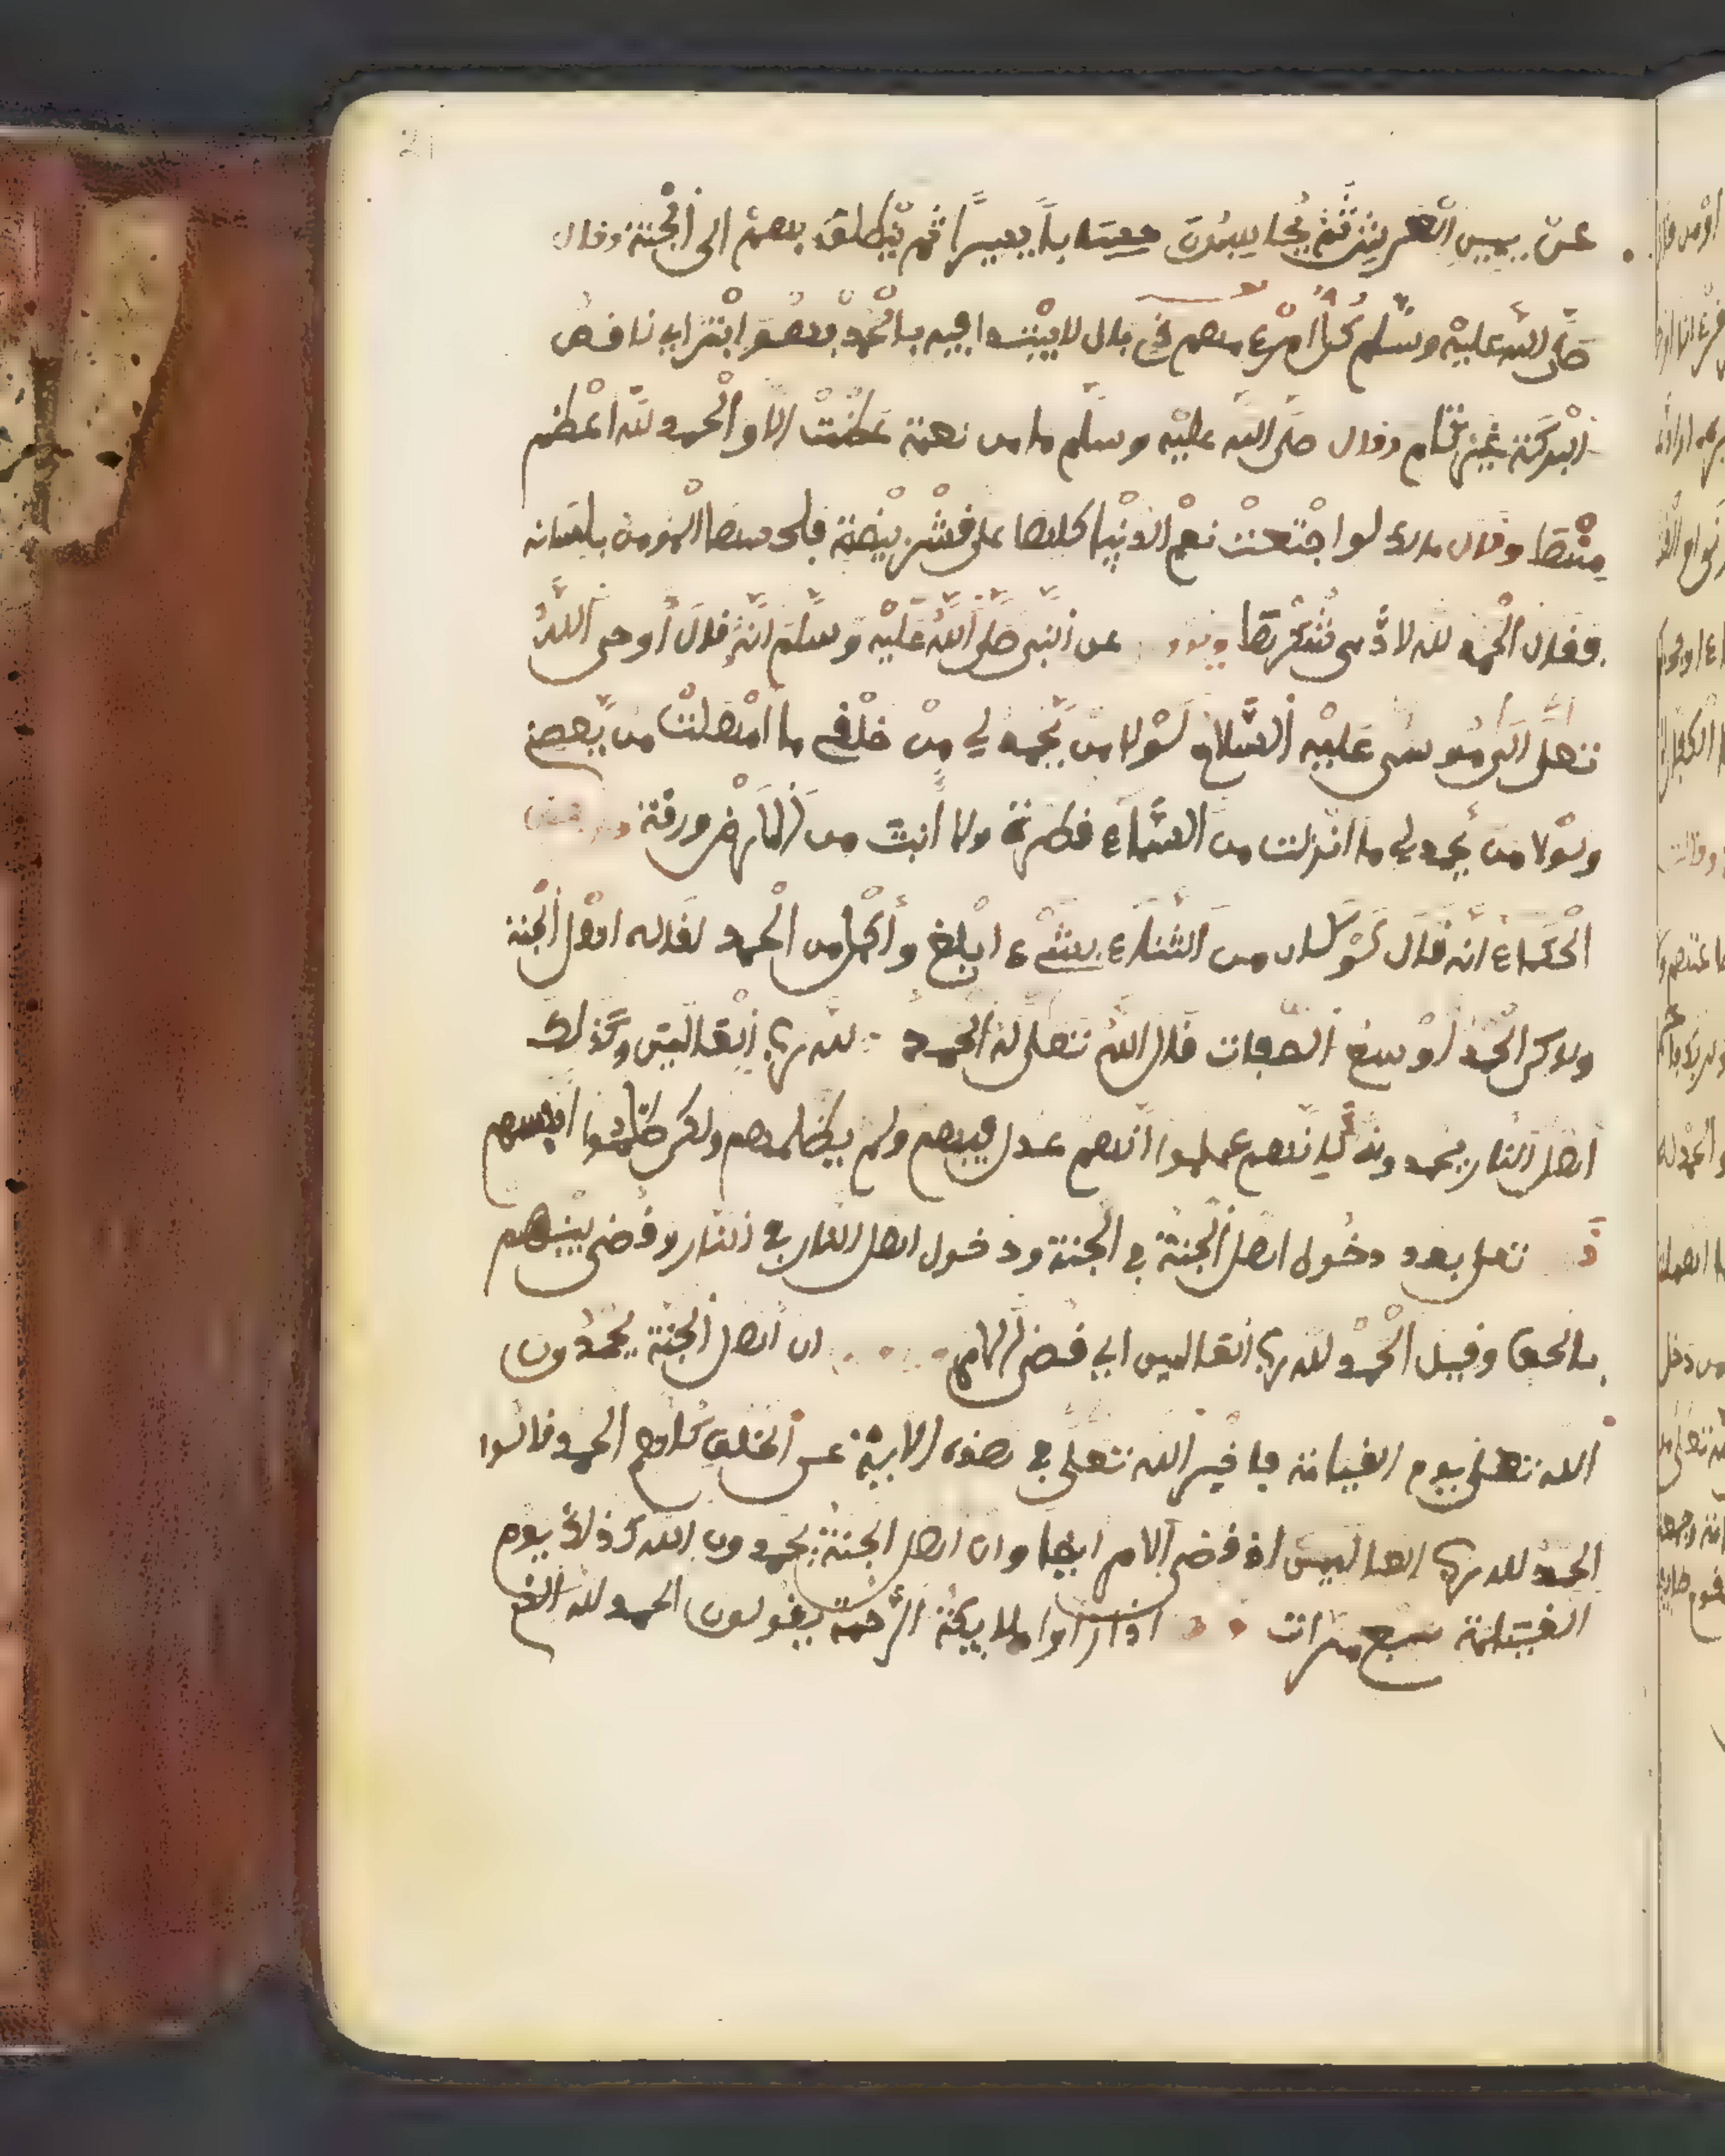 21
عن يمين العرش ثم يحاسبون حسابا يسيرا ثم ينطلق بهم الى الجنة وقال
صلى الله عليه وسلم كل امرء منهم ذي بال لا يبتدا فيه بالحمد فهو ابتر اي ناقص
البركة غير تام وقال صلى الله عليه وسلم ما من نعمة عظمت الا والحمد لله اعظم
منها وقال مالك لو اجتمعت نعم الدنيا كلها على قشر بيضة فلحسها المومن بلسانه
فقال الحمد لله لادى شكرها عن النبي صلى الله عليه وسلم انه قال أوحى الله
تعلى الى موسى عليه السلام لولا من يحمد لي من خلقي ما امهلت من يعص
ولولا من يحمد لي ما انزلت من السماء قطرة ولا أنبت من الارض ورقة
الحكماء انه قال لو كان من الثناء بشيء ابلغ وأكمل من الحمد لقاله اهل الجنة
ولاكن الحمد اوسع الصفات قال الله تعلى له الحمد لله رب العالمين وكذلك
اهل النار يحمدونه لانهم عملوا انهم عدل فيهم ولم يظلمهم ولكن ظلموا انفسهم
تعلى بعد دخول اهل الجنة في الجنة ودخول اهل النار في النار وقضى بينهم
بالحق وقيل الحمد لله رب العالمين اي قضي الامر ان اهل الجنة يحمدون
الله تعلى يوم القيامة فاخبر الله تعلى في هذه الاية عن الخلق كلامهم الحمد قالوا
الحمد لله رب العالمين اذ قضى الامر ايضا وان اهل الجنة يحمدون الله كذلك يوم
القيامة سبع مرات اذا راوا ملايكة الرحمة يقولون الحمد لله الخ